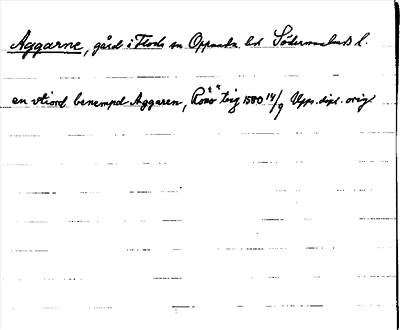 Aggarne, gård i Floda sn Oppunda hd Södermanlands l.
en vtiord benempd Aggaren, Rönö tïg 1580 14/9 Upps. dipl. orig.